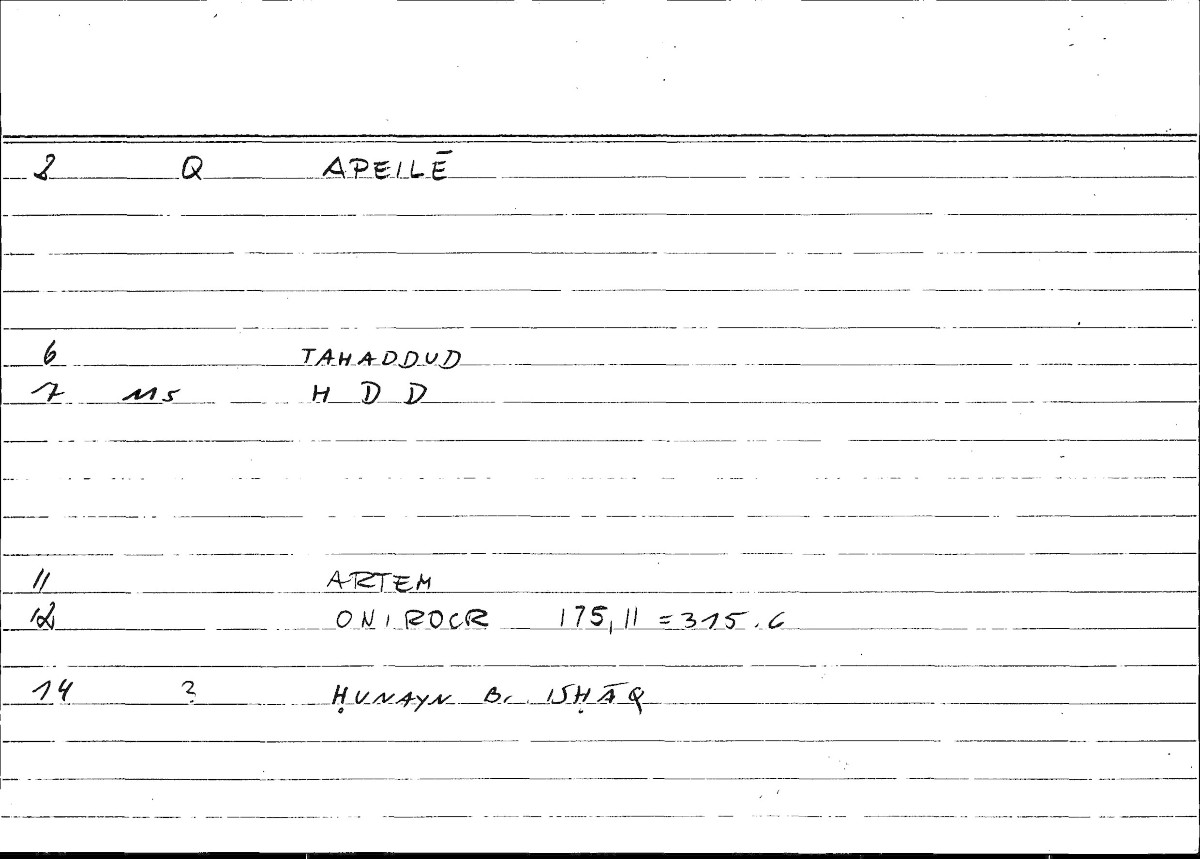 2 Q APEILĒ
6 TAHADDUD
7 M5 H D D
11 ARTEM
12 ONIROCR 175,11 = 315.6
14 ? ḤUNAYN B. ISḤĀQ